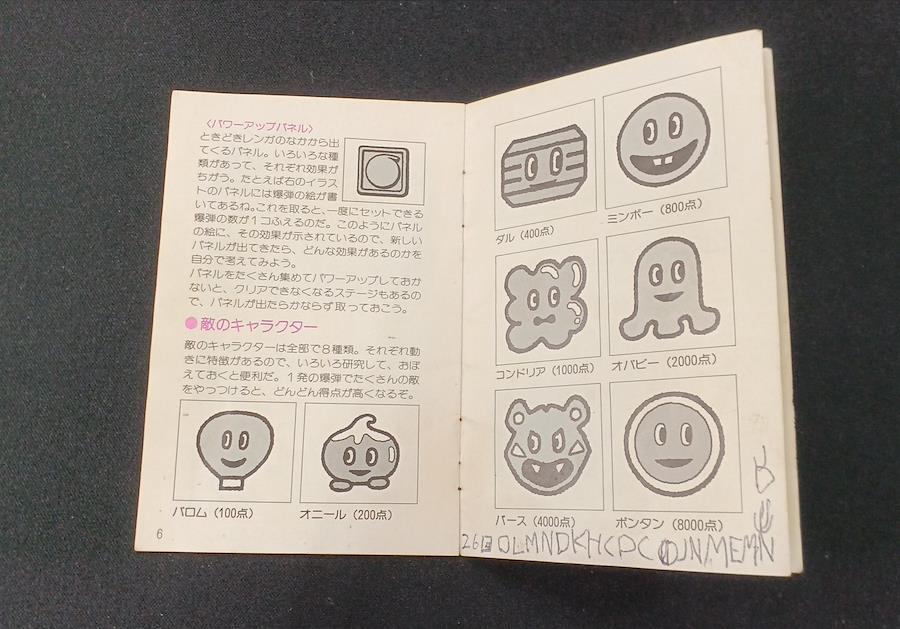 〈パワーアップパネル〉
ときどきレンガのなかから出
てくるパネル。いろいろな種
類があって、それぞれ効果が
ちがう。たとえば右のイラス
トのパネルには爆弾の絵が書
いてあるね。これを取ると、一度にセットできる
爆弾の数が1コふえるのだ。このようにパネル
の絵に、その効果が示されているので、新しい
パネルが出てきたら、どんな効果があるのかを
自分で考えてみよう。
パネルをたくさん集めてパワーアップしておか
ないと、クリアできなくなるステージもあるの
で、パネルが出たらかならず取っておこう。
●敵のキャラクター
敵のキャラクターは全部で8種類。それぞれ動
きに特徴があるので、いろいろ研究して、おぼ
えておくと便利だ。1発の爆弾でたくさんの敵
をやっつけると、どんどん得点が高くなるぞ。
バロム（100点）
オニール（200点）
6
ダル（400点）
ミンボー（800点）
コンドリア（1000点）
オバピー（2000点）
パース（4000点）
ポンタン（8000点）